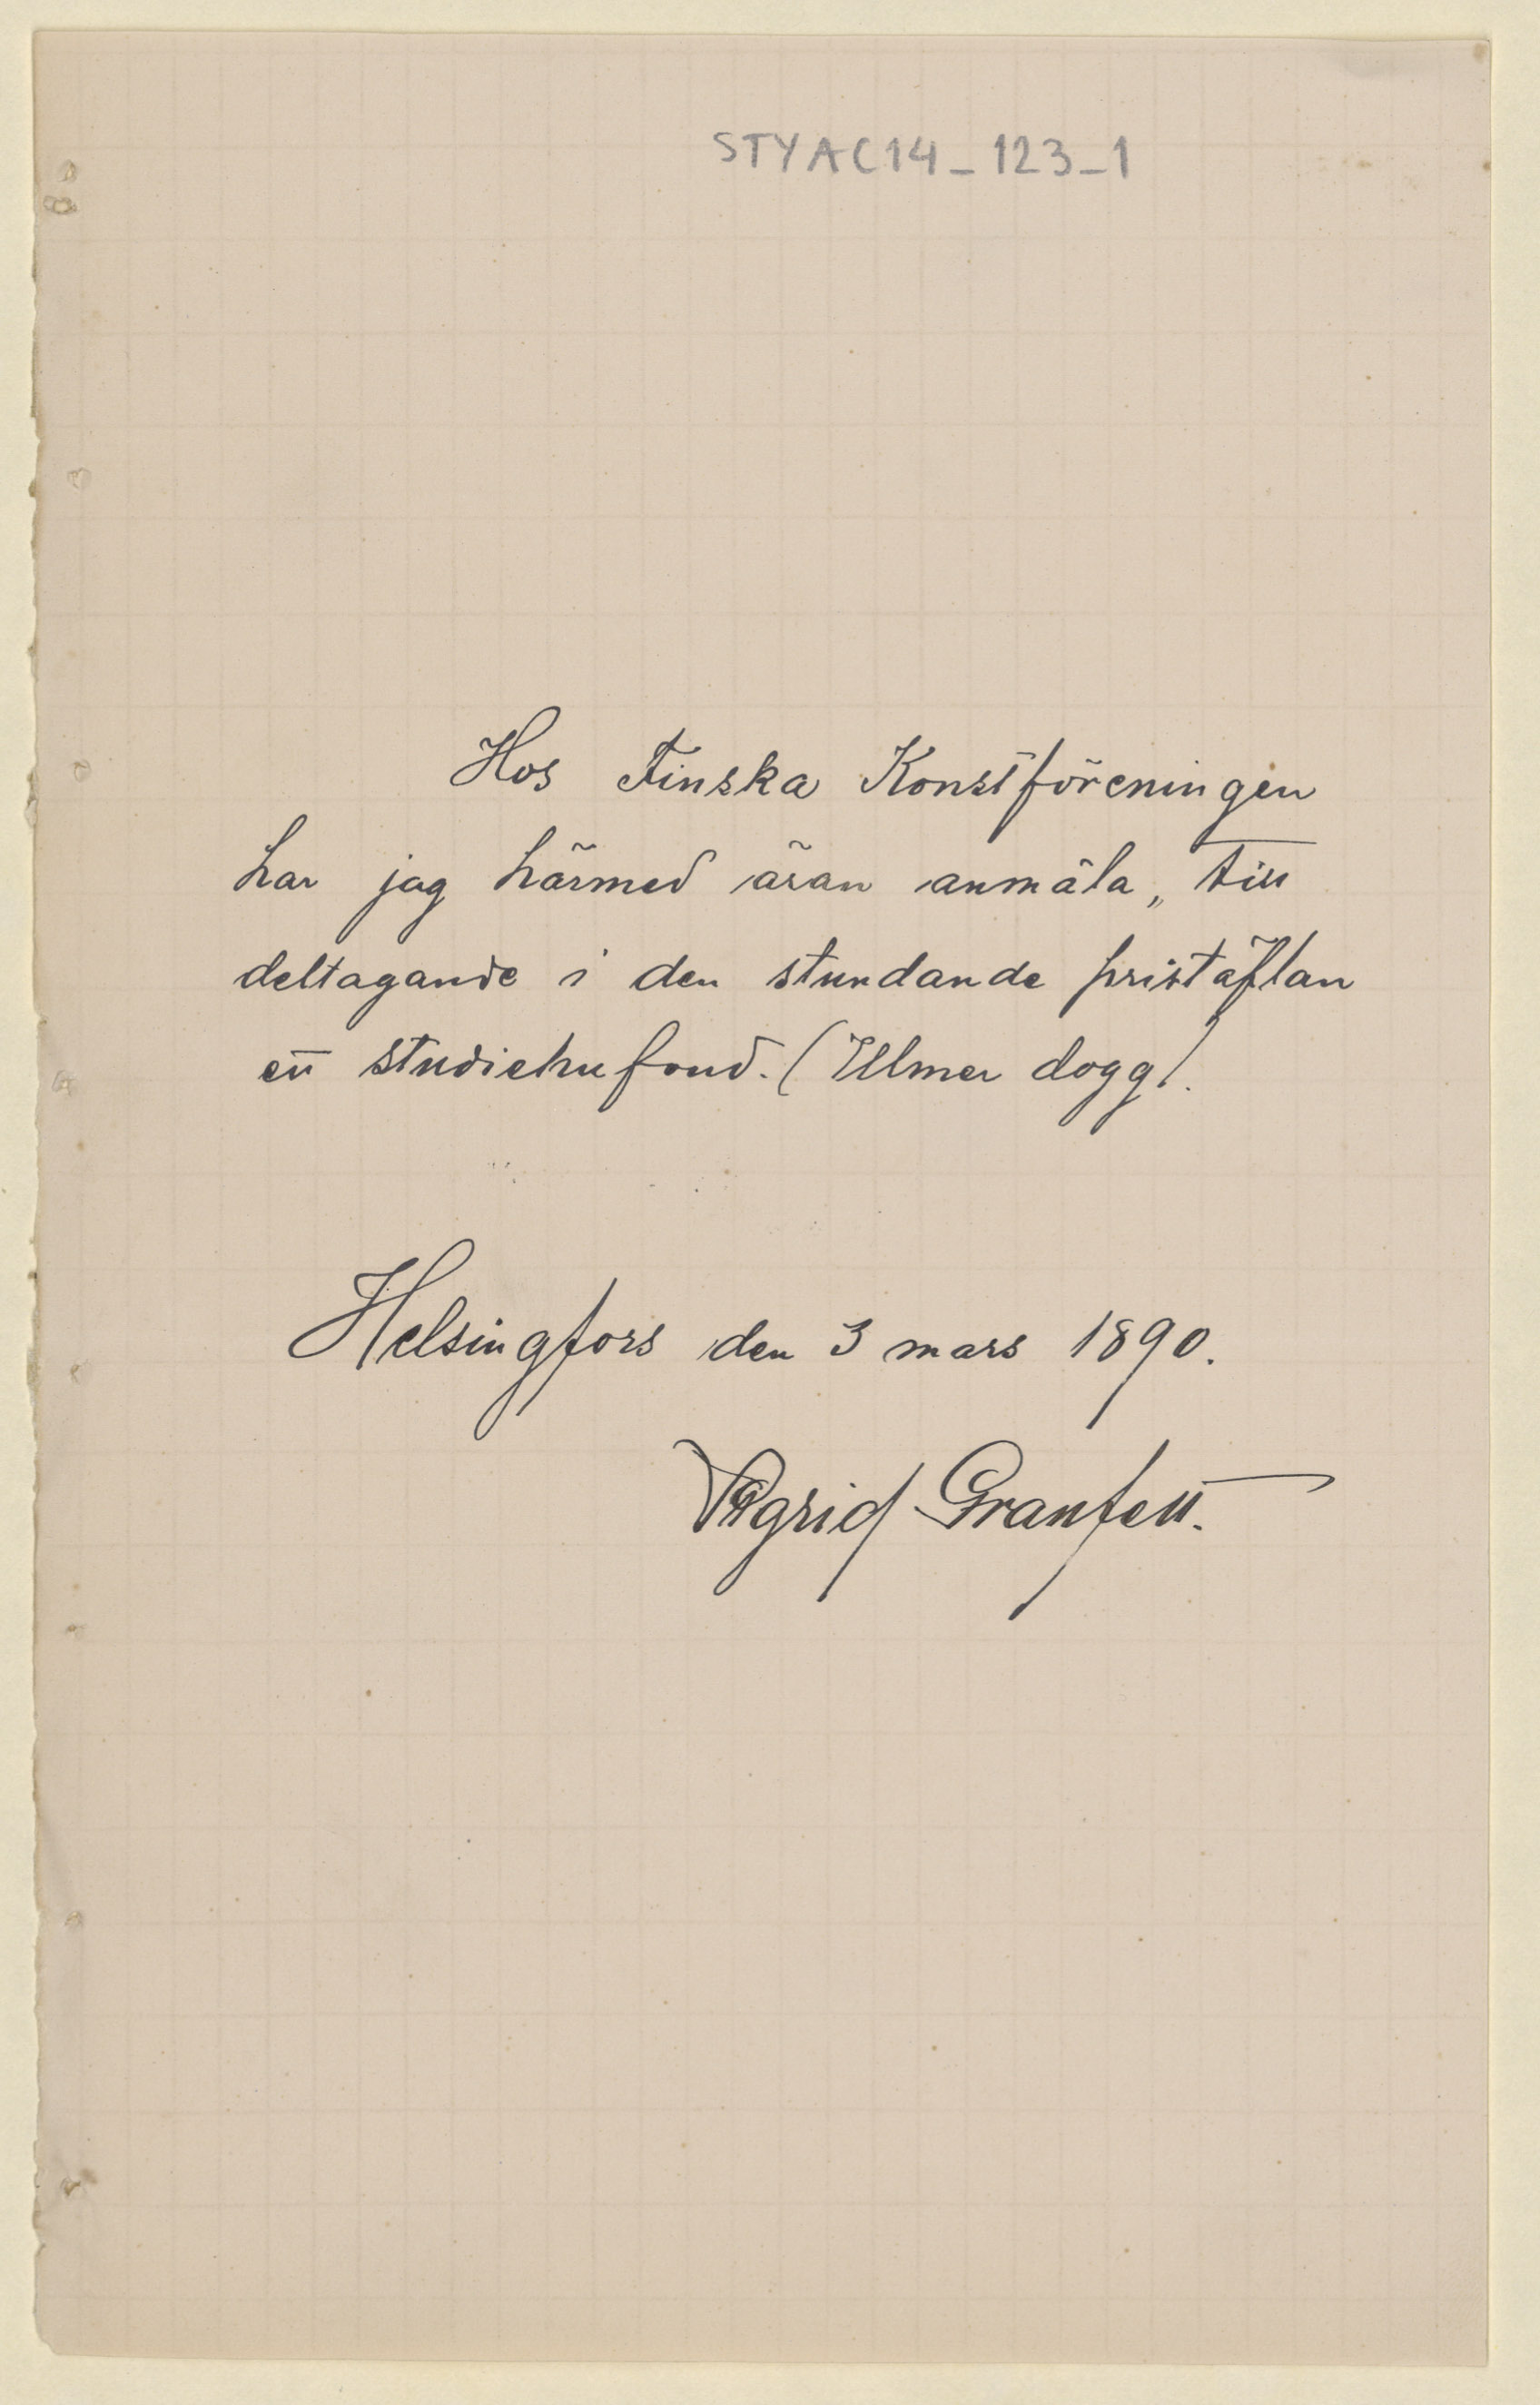 STYAC14_123_1
Hos Finska Konstföreningen
har jag härmed äran anmäla, till
deltagande i den stundande pristäflan
ett studiehufvud. (Ulmer dogg).
Helsingfors den 3 mars 1890.
Sigrid Granfelt.